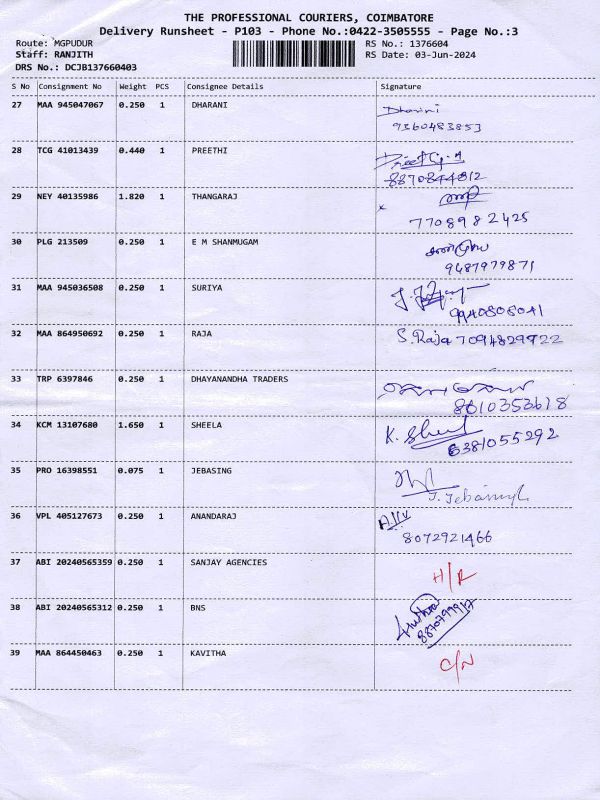 THE PROFESSIONAL COURIERS, COIMBATORE
Delivery Runsheet - P103 - Phone No.:0422-3505555 - Page No.:3
Route: MGPUDUR RS No.: 1376604
Staff: RANJITH RS Date: 03-Jun-2024
DRS No.: DCJB137660403
S No Consignment No Weight PCS Consignee Details Signature
27 MAA 945047067 0.250 1 DHARANI Dharini
9360483853
28 TCG 41013439 0.440 1 PREETHI
8870844812
29 NEY 40135986 1.820 1 THANGARAJ
7708982425
30 PLG 213509 0.250 1 E M SHANMUGAM
9487979871
31 MAA 945036508 0.250 1 SURIYA
9940806041
32 MAA 864950692 0.250 1 RAJA S. Raja 7094829722
33 TRP 6397846 0.250 1 DHAYANANDHA TRADERS
8610353618
34 KCM 13107680 1.650 1 SHEELA K. Sheel
6381055292
35 PRO 16398551 0.075 1 JEBASING
36 VPL 405127673 0.250 1 ANANDARAJ
8072921466
37 ABI 20240565359 0.250 1 SANJAY AGENCIES H/R
38 ABI 20240565312 0.250 1 BNS
39 MAA 864450463 0.250 1 KAVITHA C/N